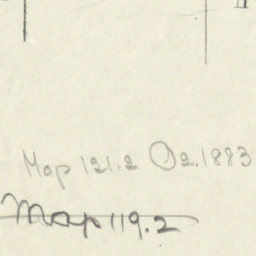 Map 121.2 O2.1883
Map 119.2